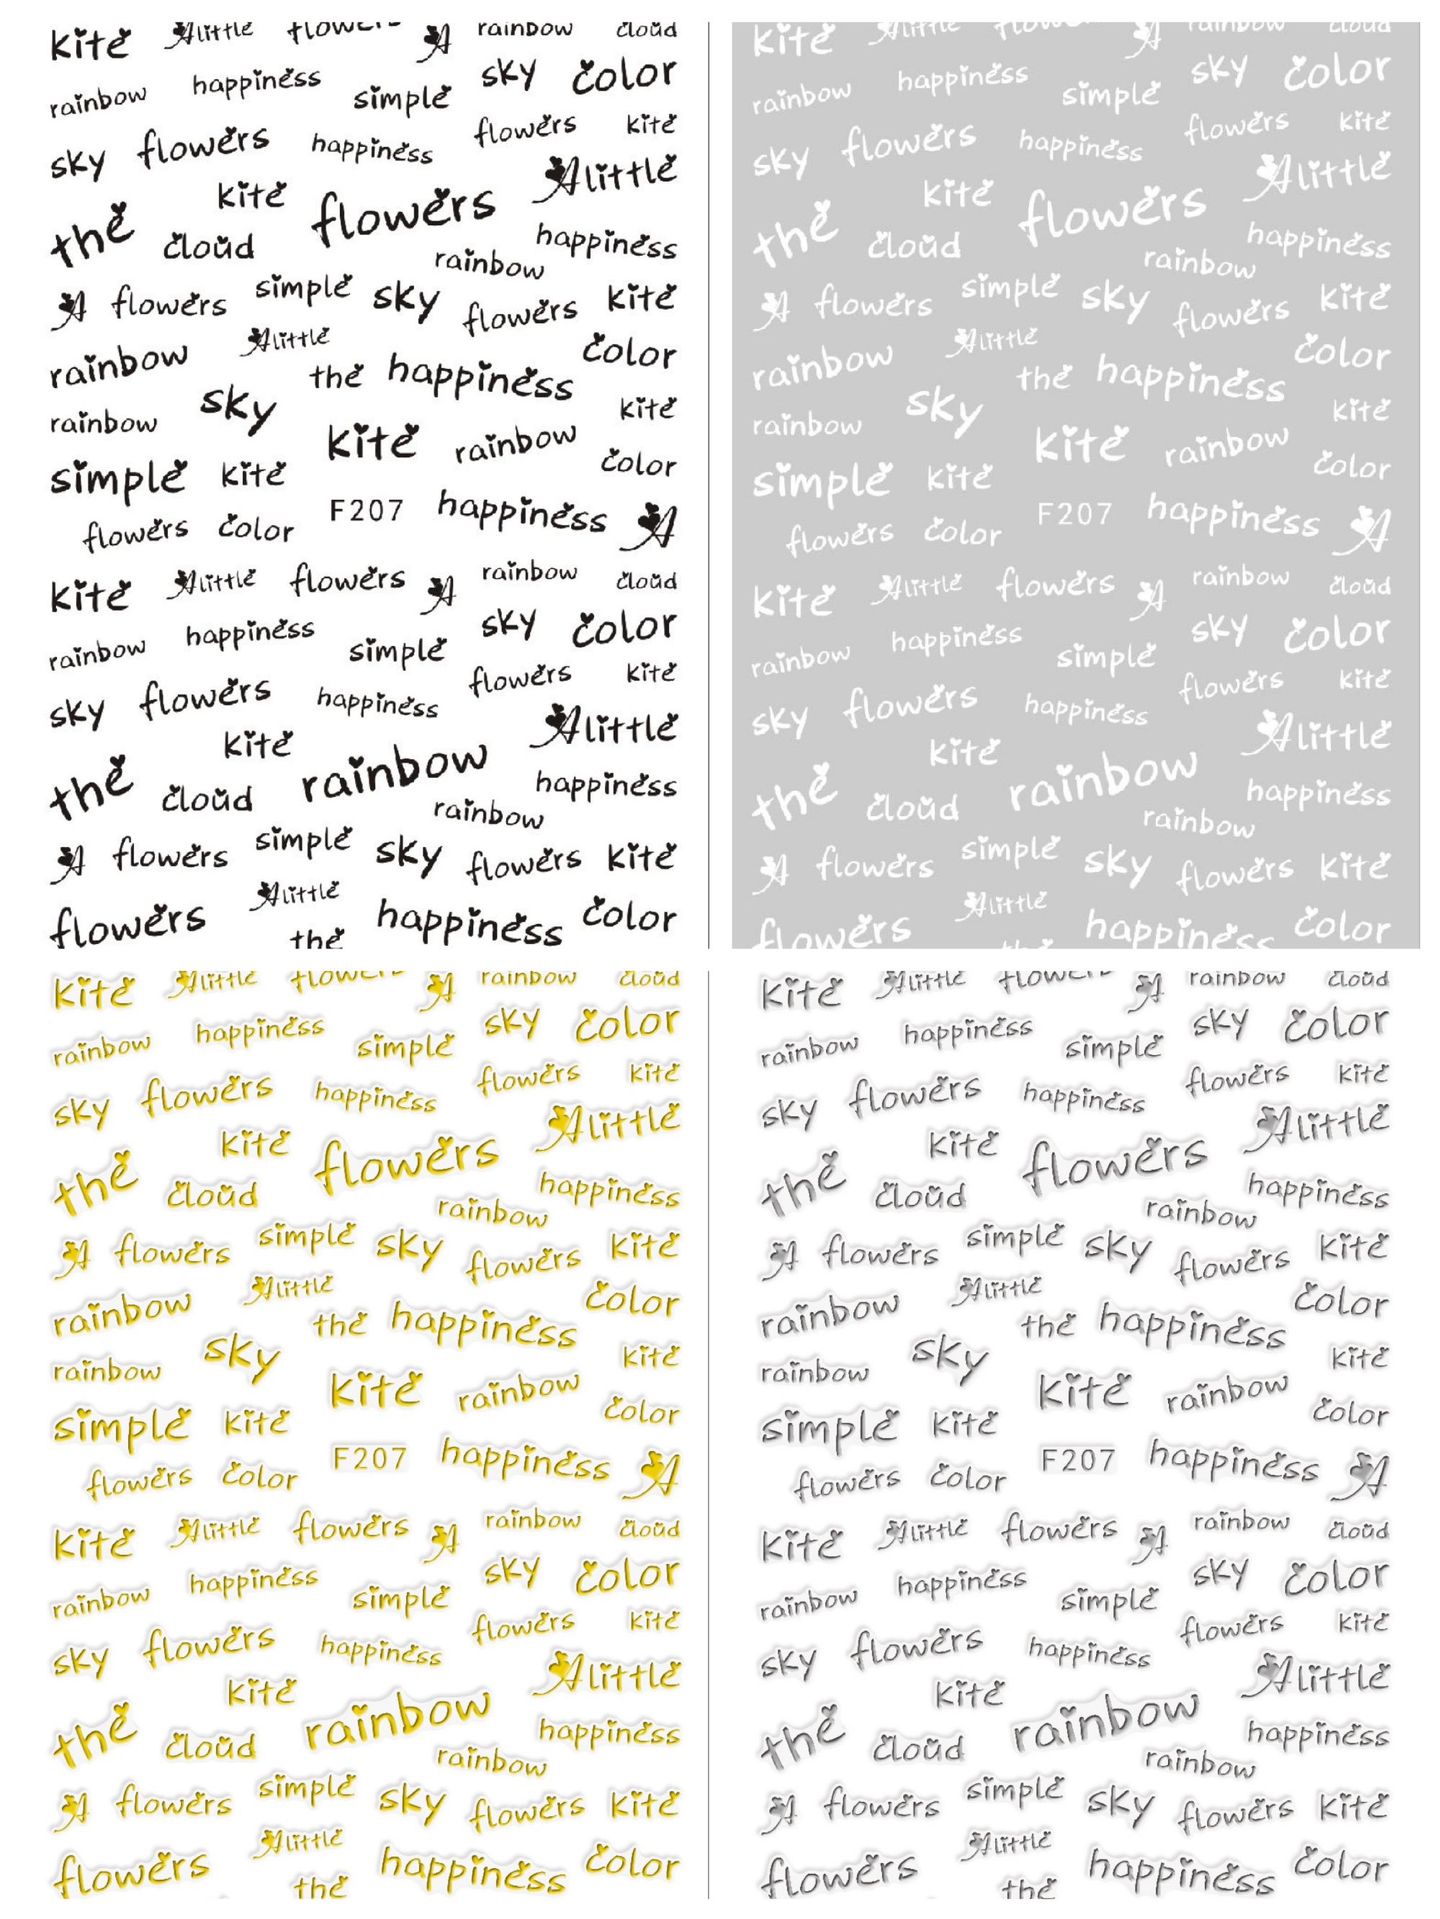 kite Alittle flowers A rainbow cloud
rainbow happiness simple sky color
sky flowers happiness flowers kite
the kite flowers Alittle
cloud rainbow happiness
A flowers simple sky flowers kite
rainbow Alittle the happiness color
rainbow sky kite rainbow kite
simple kite F207 happiness color A
flowers color
kite Alittle flowers A rainbow cloud
rainbow happiness simple sky color
sky flowers happiness flowers kite
the kite rainbow Alittle
cloud rainbow happiness
A flowers simple sky flowers kite
flowers Alittle the happiness color
kite Alittle flowers A rainbow cloud
rainbow happiness simple sky color
sky flowers happiness flowers kite
the kite flowers Alittle
cloud rainbow happiness
A flowers simple sky flowers kite
rainbow Alittle the happiness color
rainbow sky kite rainbow kite
simple kite F207 happiness color A
flowers color
kite Alittle flowers A rainbow cloud
rainbow happiness simple sky color
sky flowers happiness flowers kite
the kite rainbow Alittle
cloud rainbow happiness
A flowers simple sky flowers kite
flowers Alittle the happiness color
kite Alittle flowers A rainbow cloud
rainbow happiness simple sky color
sky flowers happiness flowers kite
the kite flowers Alittle
cloud rainbow happiness
A flowers simple sky flowers kite
rainbow Alittle the happiness color
rainbow sky kite rainbow kite
simple kite F207 happiness color A
flowers color
kite Alittle flowers A rainbow cloud
rainbow happiness simple sky color
sky flowers happiness flowers kite
the kite rainbow Alittle
cloud rainbow happiness
A flowers simple sky flowers kite
flowers Alittle the happiness color
kite Alittle flowers A rainbow cloud
rainbow happiness simple sky color
sky flowers happiness flowers kite
the kite flowers Alittle
cloud rainbow happiness
A flowers simple sky flowers kite
rainbow Alittle the happiness color
rainbow sky kite rainbow kite
simple kite F207 happiness color A
flowers color
kite Alittle flowers A rainbow cloud
rainbow happiness simple sky color
sky flowers happiness flowers kite
the kite rainbow Alittle
cloud rainbow happiness
A flowers simple sky flowers kite
flowers Alittle the happiness color